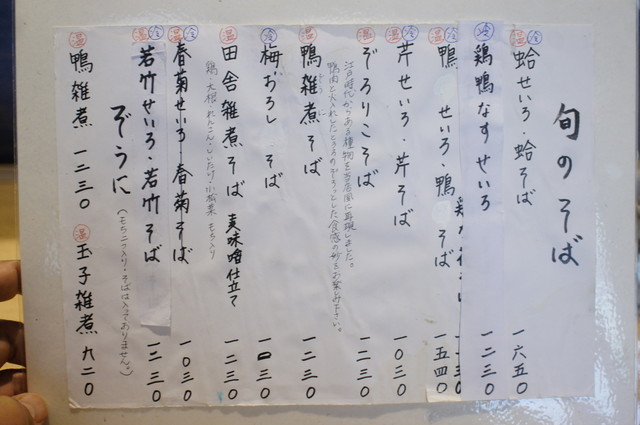 旬のそば
冷 温 蛤せいろ・蛤そば 一六五〇
冷 鶏鴨なすせいろ 一二三〇
温 鴨せいろ・鴨そば 一五四〇
温 冷 芹せいろ・芹そば 一〇三〇
温 ぞろりこそば 一二三〇
江戸時代からある種物を当店風に再現しました。
温 鴨雑煮そば 一二三〇
冷 梅おろしそば 一一三〇
温 田舎雑煮そば 麦味噌仕立て 一二三〇
鶏・大根・れんこん・しいたけ・小松菜 もち入り
温 冷 春菊せいろ・春菊そば 一〇三〇
温 冷 若竹せいろ・若竹そば 一二三〇
ぞうに(もち二つ入り・そばは入っておりません。)
温 鴨雑煮 一二三〇 温 玉子雑煮 九二〇